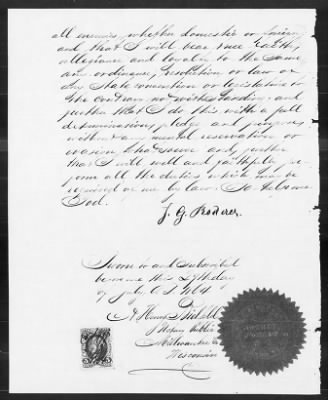 all enemies, whether domestic or foreign
and that I will bear true faith,
allegiance and loyalty to the same,
any ordinance, resolution or law or
any State convention or legislature to
the contrary notwithstanding: and
further that I do this with a full
determination, pledge and purpose,
without any mental reservation or
evasion whatsoever and further
that I will well and faithfully per-
form all the duties which may be
required of me by law: So help me
God.
J. G.
Sworn to and subscribed
before me this 29th day
of July 1864
Notary Public
Milwaukee
Wisconsin